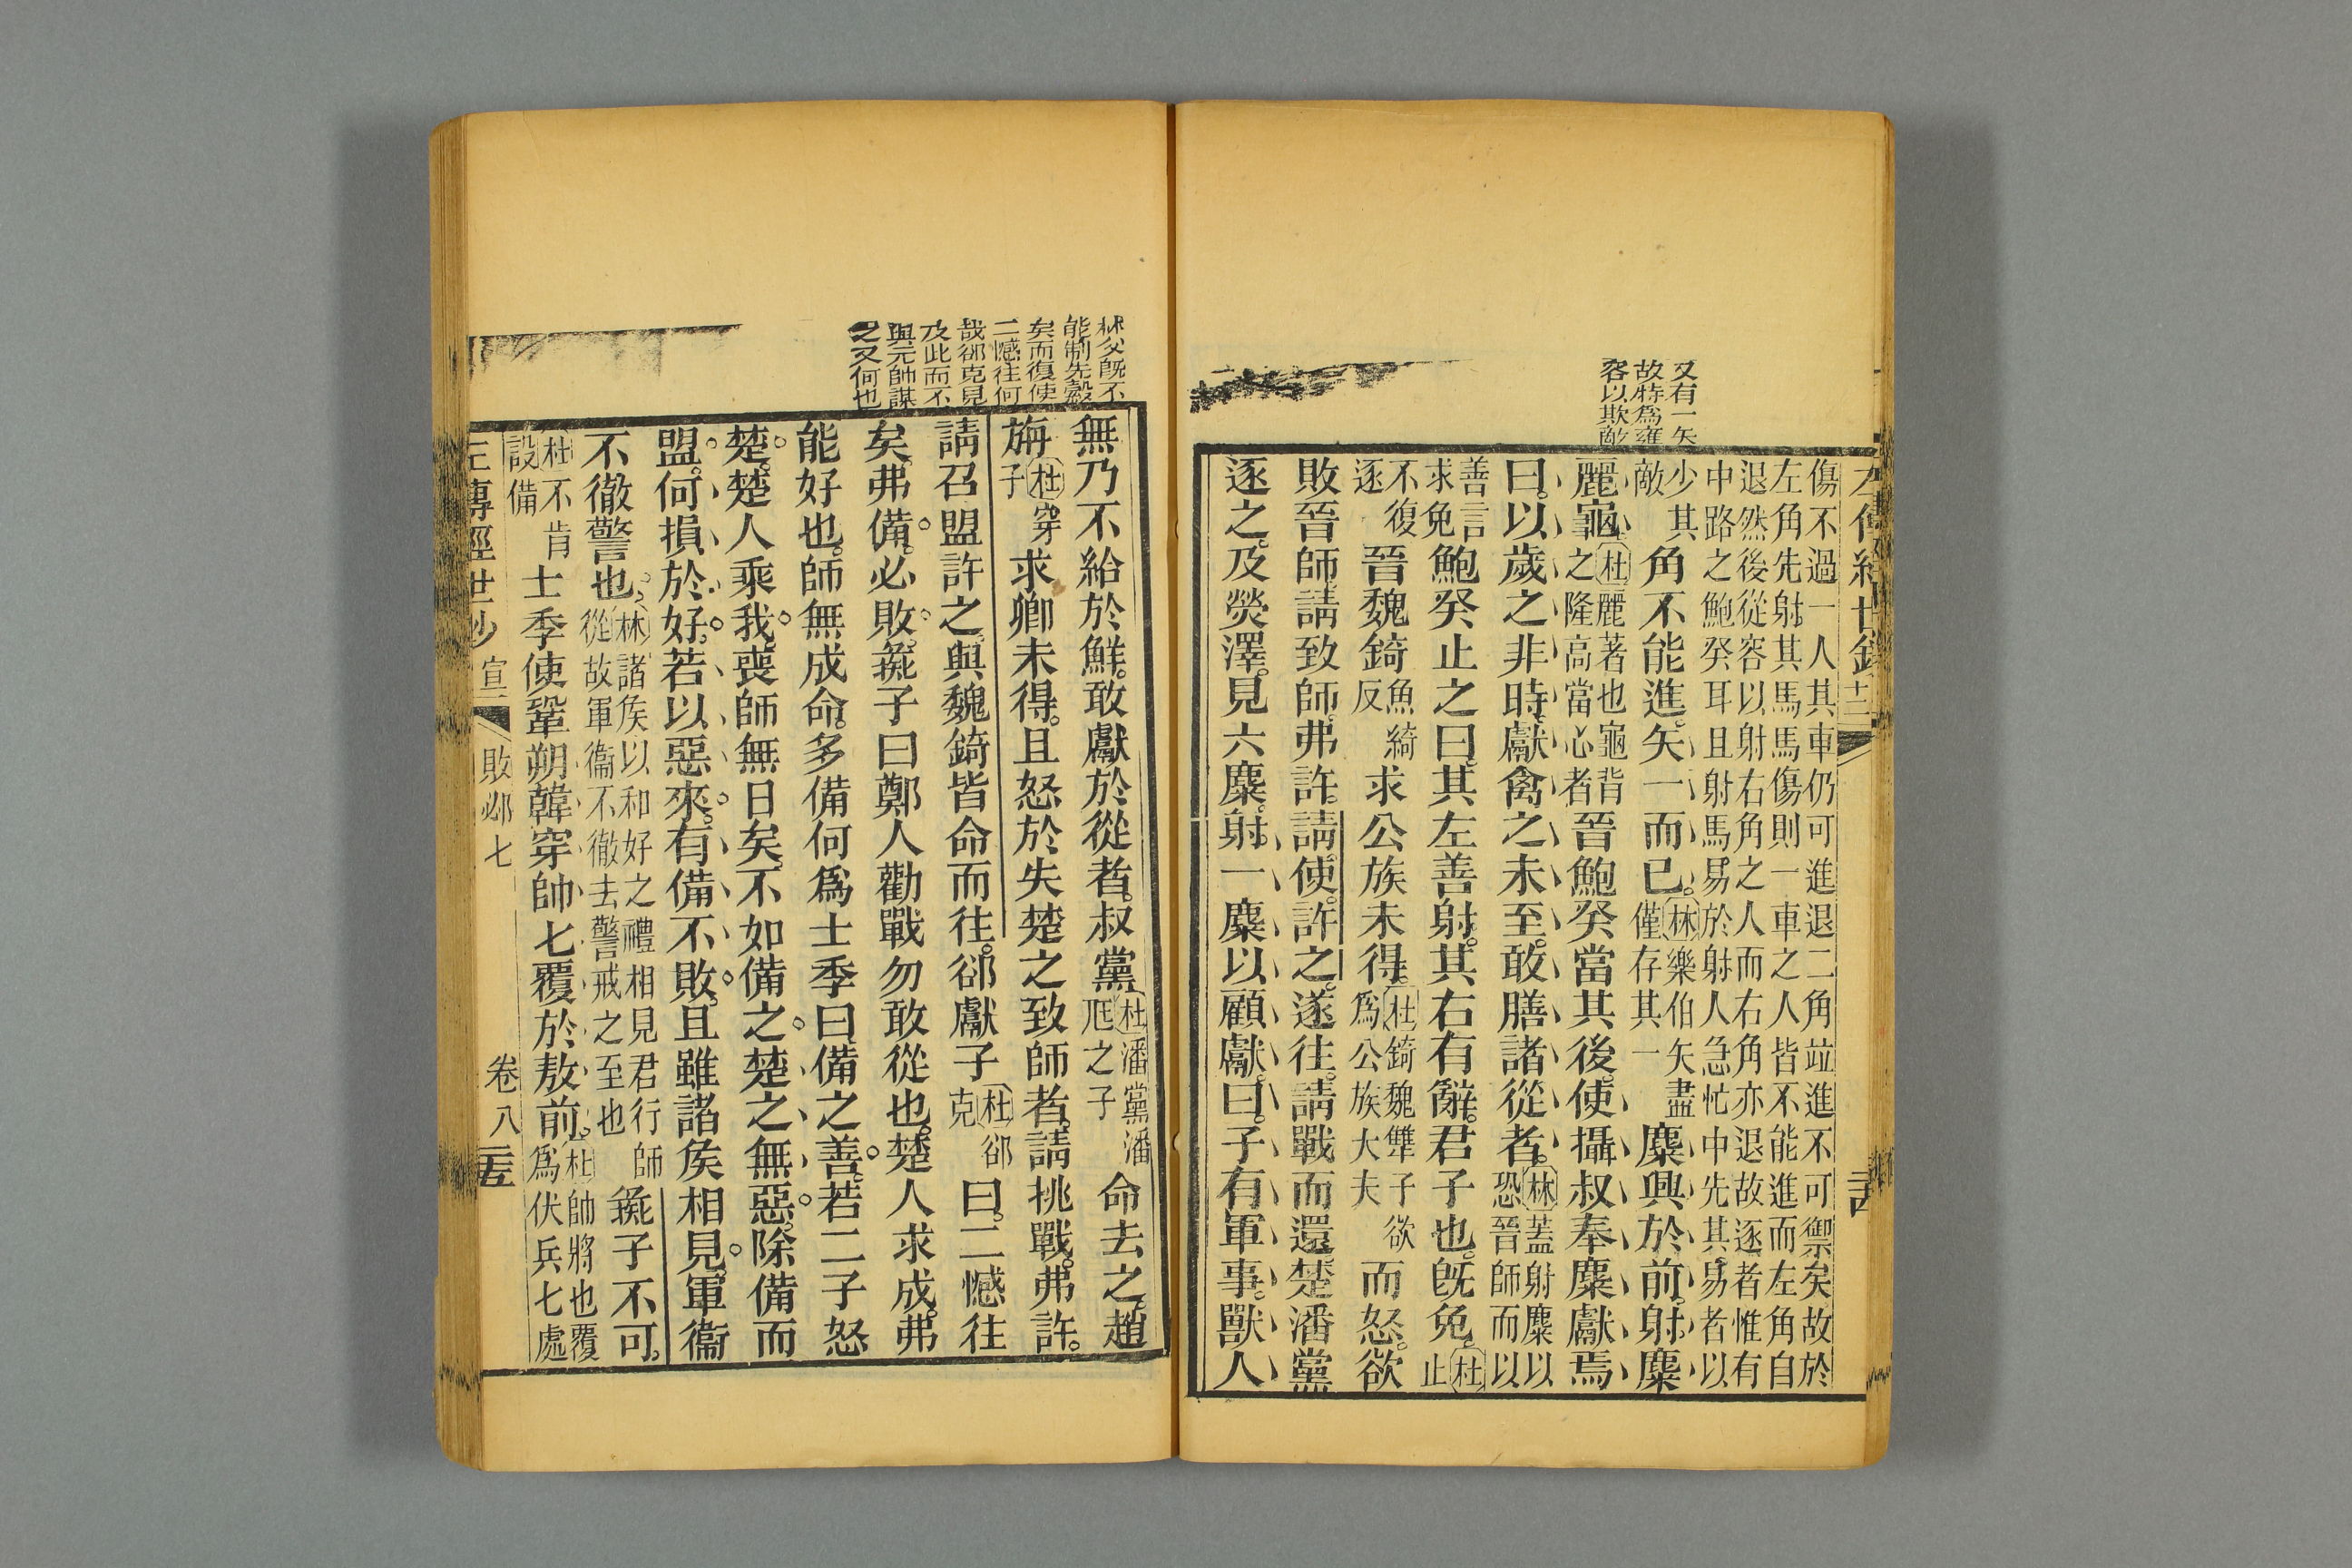 又有一矢
故特為雍
容以欺敵
傷不過一人其車仍可進退二角竝進不可禦矣故於
左角先射其馬馬傷則一車之人皆不能進而左角自
退然後從容以射右角之人而右角亦退故逐者惟有
中路之鮑癸耳且射馬易於射人急忙中先其易者以
少其
敵
角不能進矢一而已
林樂伯矢盡
僅存其一
麋興於前射麋
麗龜
杜麗著也龜背
之隆高當心者
晉鮑癸當其後使攝叔奉麋獻焉
曰以歲之非時獻禽之未至敢膳諸從者
林蓋射麋以
恐晉師而以
善言
求免
鮑癸止之曰其左善射其右有辭君子也旣免
杜
止
不復
逐
晉魏錡
魚綺
反
求公族未得
杜錡魏犨子欲
爲公族大夫
而怒欲
敗晉師請致師弗許請使許之遂往請戰而還楚潘黨
逐之及熒澤見六麋射一麋以顧獻曰子有軍事獸人
林父旣不
能制先縠
矣而復使
二憾往何
哉郤克見
及此而不
與元帥謀
之又何也
無乃不給於鮮敢獻於從者叔黨
杜潘黨潘
尫之子
命去之趙
旃
杜穿
子
求卿未得且怒於失楚之致師者請挑戰弗許
請召盟許之與魏錡皆命而往郤獻子
杜郤
克
曰二憾往
矣弗備必敗彘子曰鄭人勸戰勿敢從也楚人求成弗
能好也師無成命多備何爲士季曰備之善若二子怒
楚楚人乘我喪師無日矣不如備之楚之無惡除備而
盟何損於好若以惡來有備不敗且雖諸矦相見軍衞
不徹警也
林諸矦以和好之禮相見君行師
從故軍衞不徹去警戒之至也
彘子不可
杜不肯
設備
士季使鞏朔韓穿帥七覆於敖前
杜帥將也覆
爲伏兵七處
宣
敗邲七
卷八